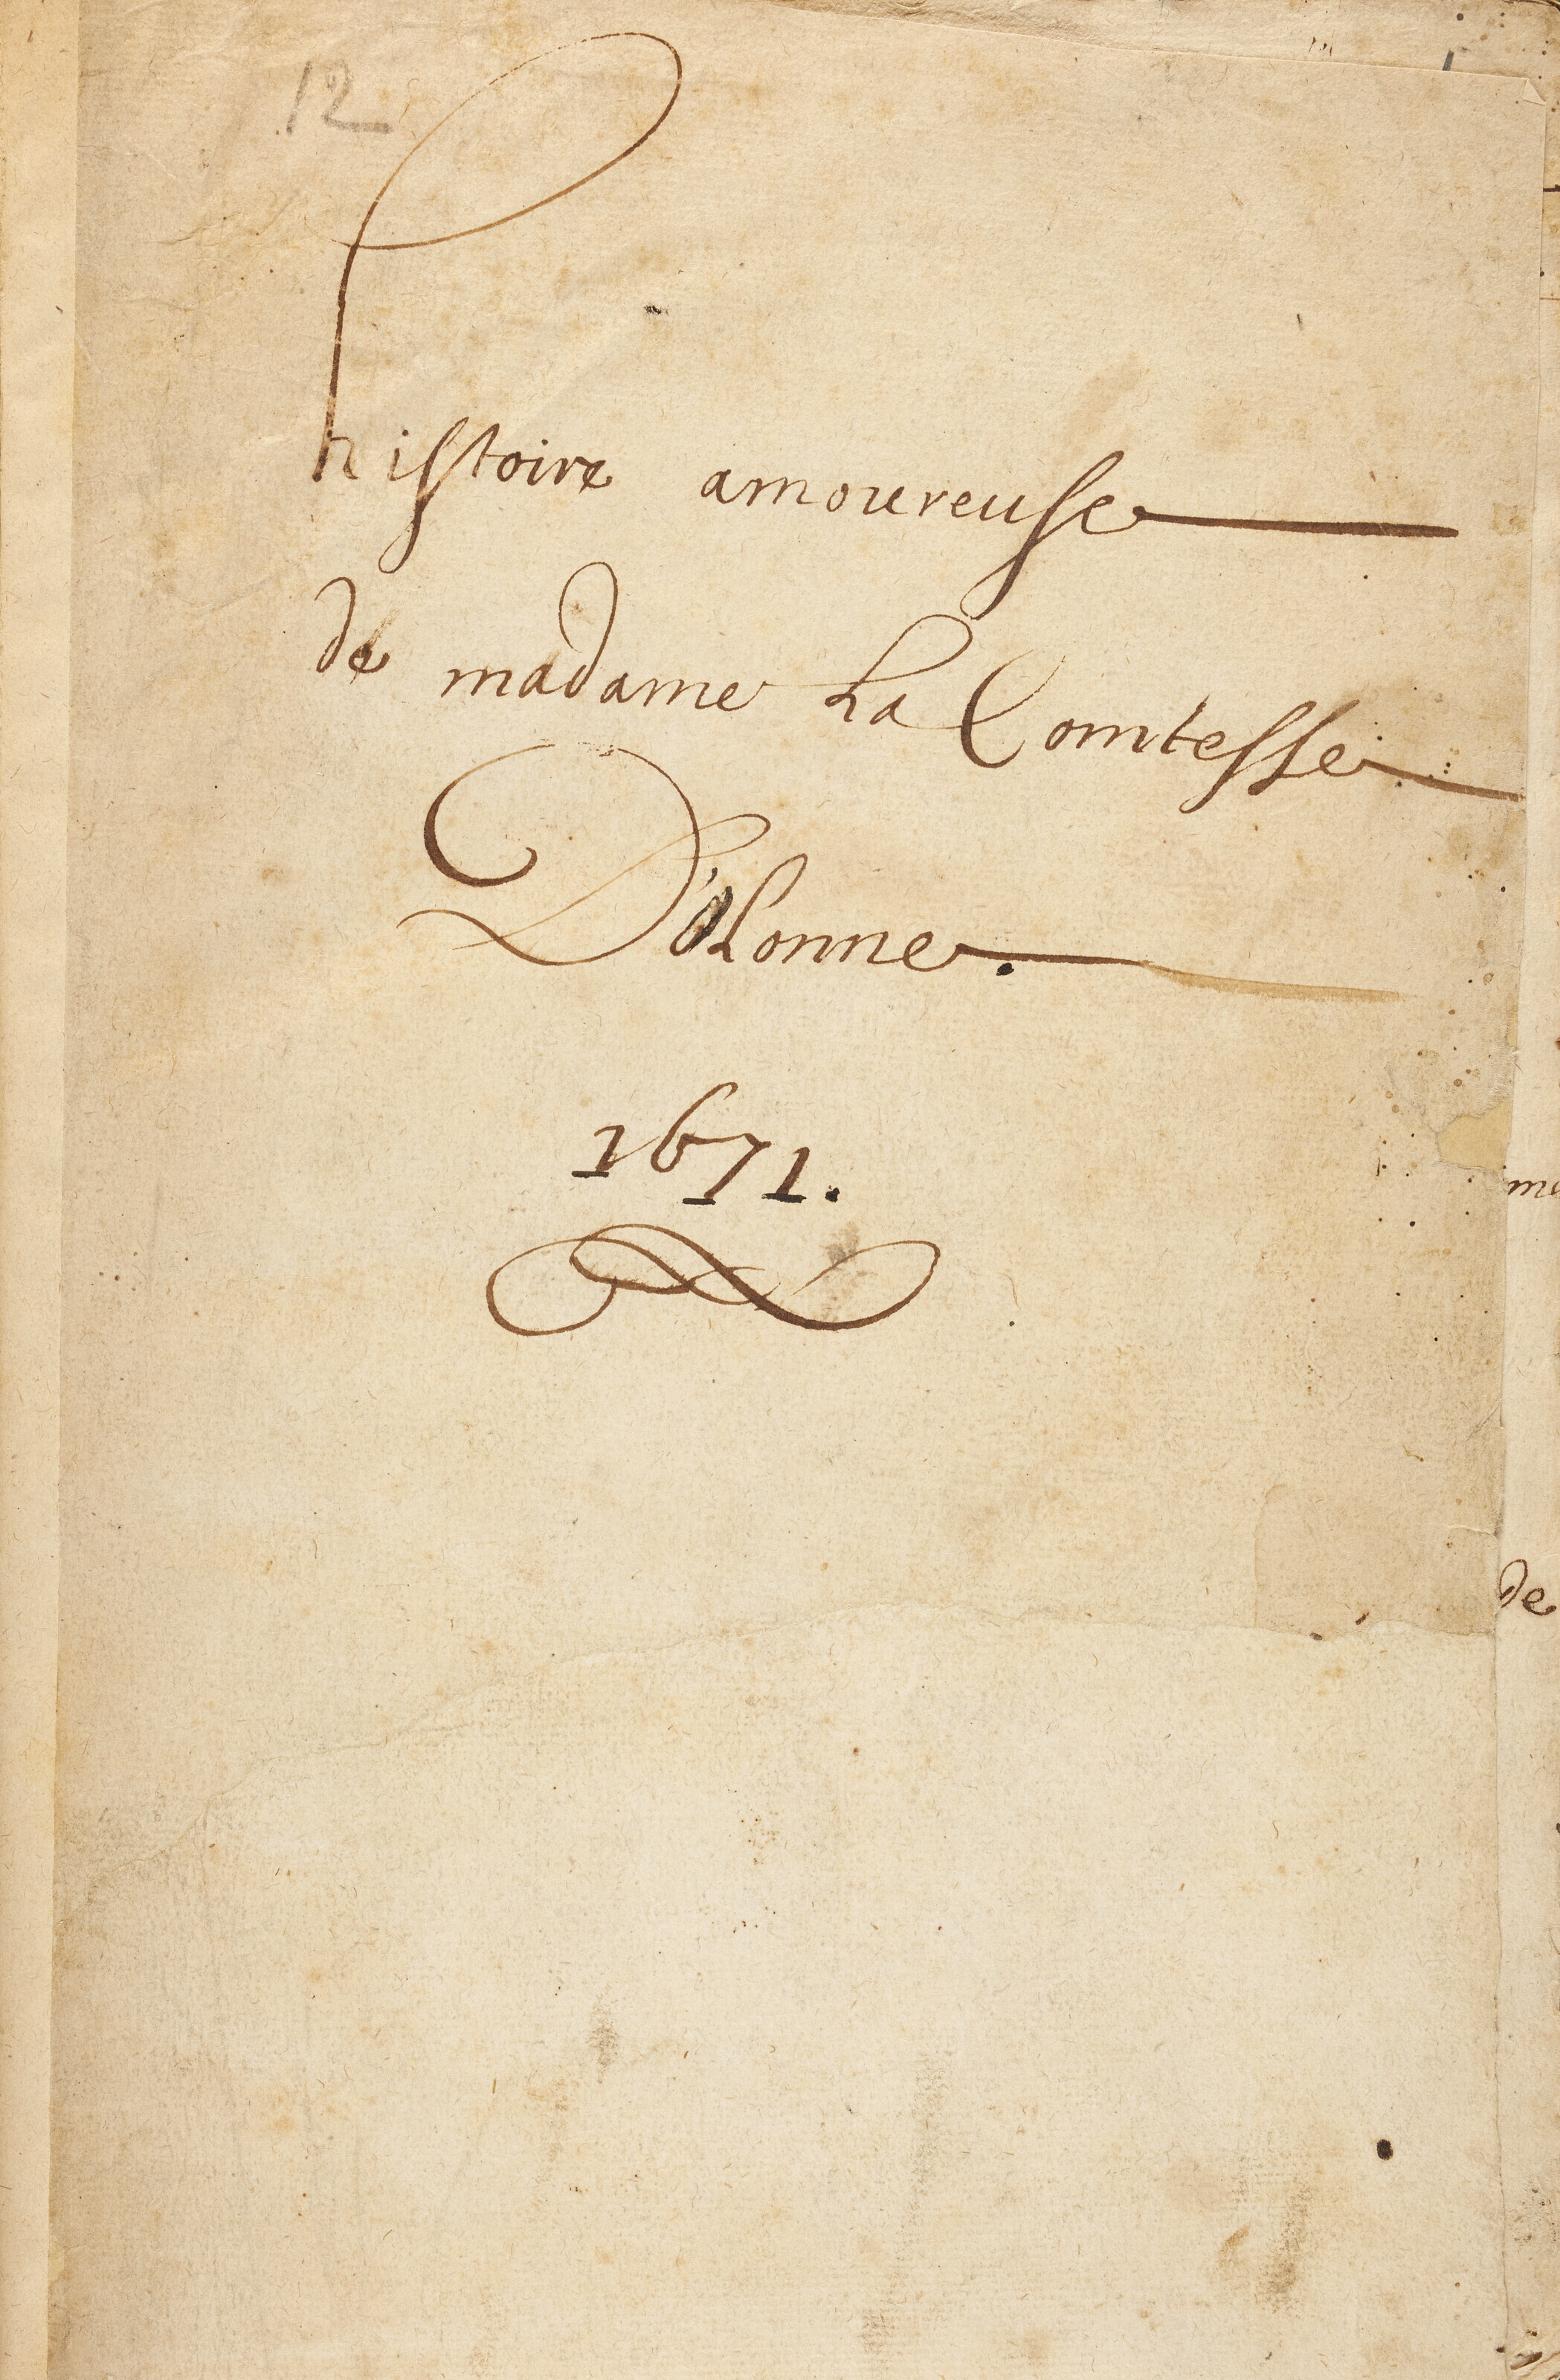 12
histoire amoureuse
de madame La Comtesse
D'olonne.
1671.
me
de